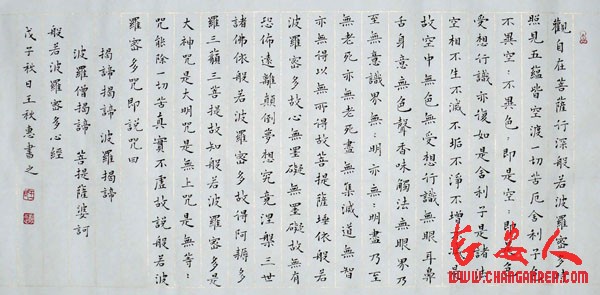 觀自在菩薩行深般若波羅密多時
照見五蘊皆空渡一切苦厄舍利子色
不異空:不異色:即是空:即是色
受想行識亦復如是舍利子是諸法
空相不生不滅不垢不淨不增不減是
故空中無色無受想行識無眼耳鼻
舌身意無色聲香味觸法無眼界乃
至無意識界無:明亦無:明盡乃至
無老死亦無老死盡無集滅道無智
亦無得以無亦得故菩提薩埵依般若
波羅密多故心無罣礙故無有
恐佈遠離顛倒夢想究竟涅槃三世
諸佛依般若波羅密多故得阿耨多
羅三藐三菩提故知般若波羅密多是
大神咒是大明咒是無上咒是無等:
咒能除一切苦真實不虛故說般若波
羅密多咒即說咒曰
揭諦揭諦 波羅揭諦
波羅僧揭諦 菩提薩婆訶
般若波羅密多心經
戊子秋日王秋惠書之
長安人
WWW.CHANGARREN.COM